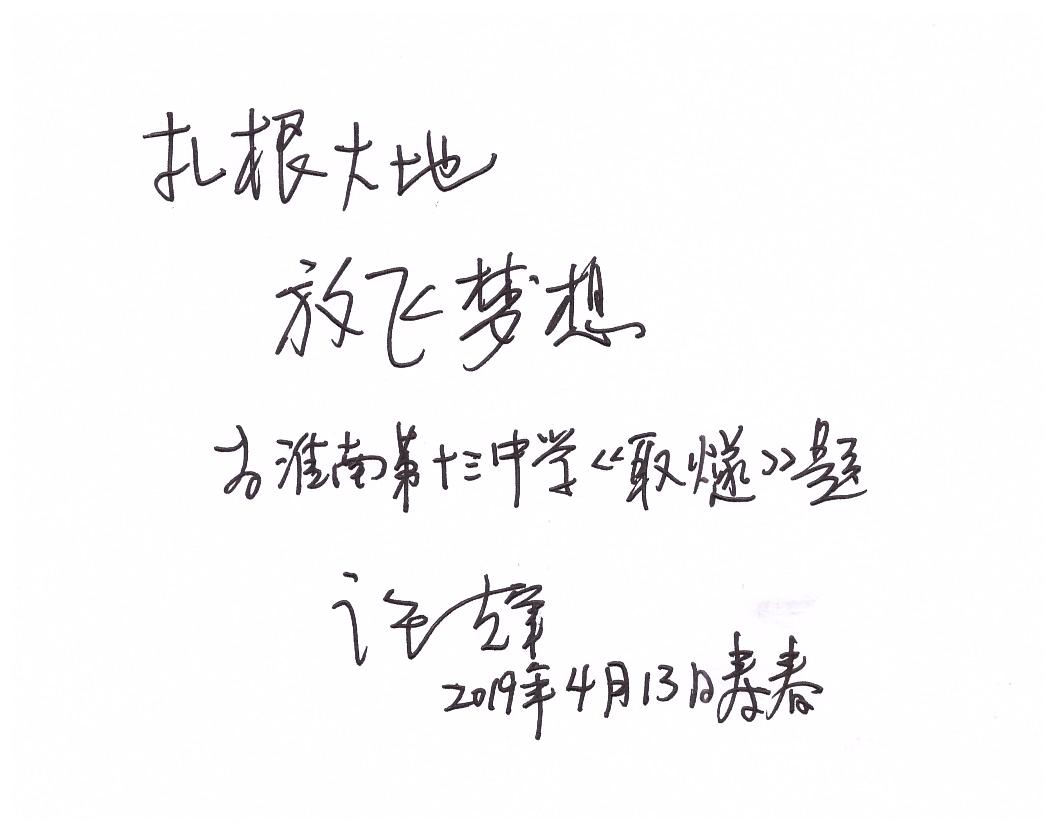 扎根大地
放飞梦想
为淮南第十三中学《取燧》题
许辉
2019年4月13日寿春